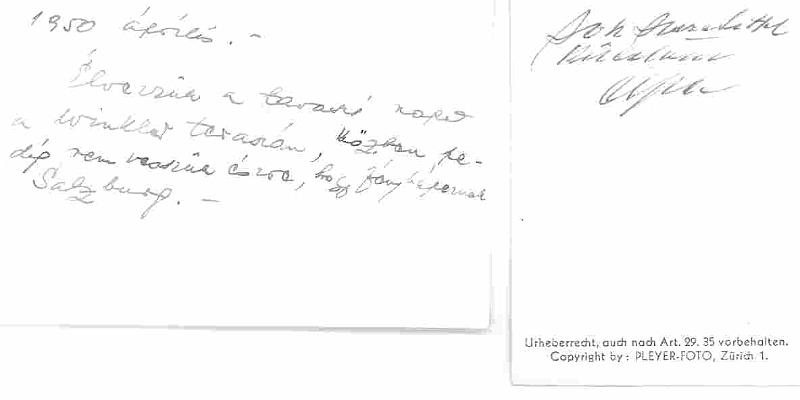 1950 április. -
Élvezzük a tavaszi napot
a Winkler teraszán, közben pe-
dig nem vesszük észre, hogy fényképeznek
Salzburg. -
Sok szeretettel
Urheberrecht, auch nach Art. 29. 35 vorbehalten.
Copyright by: PLEYER-FOTO, Zürich 1.